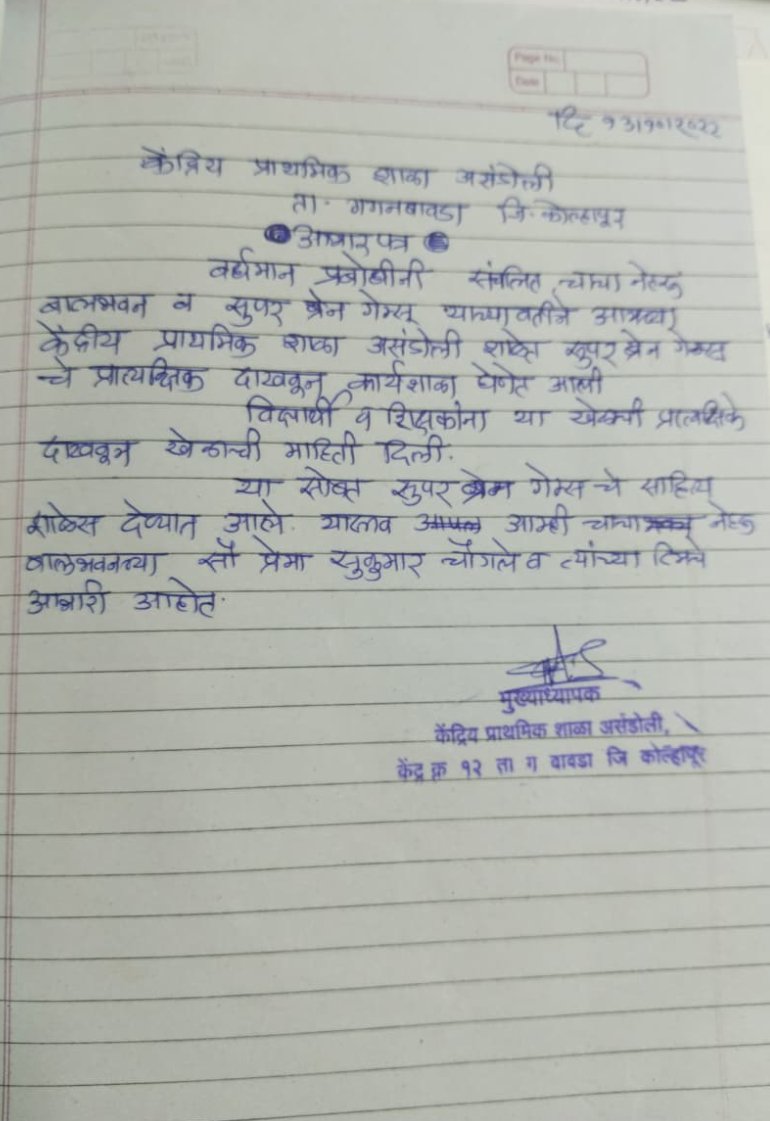 Page No.
Date
दि १३।१०।२०२२
केंद्रिय प्राथमिक शाळा असंडोली
ता. गगनबावडा जि. कोल्हापूर
आभारपत्र
वर्धमान प्रबोधीनी संचलित चाचा नेहरू
बालभवन व सुपर ब्रेन गेम्स् यांच्यावतीने आमच्या
केंद्रीय प्राथमिक शाळा असंडोली शाळेत सुपर ब्रेन गेम्स
चे प्रात्यक्षिक दाखवून कार्यशाळा घेणेत आली
विद्यार्थी व शिक्षकांना या खेळाची प्रात्यक्षिके
दाखवून खेळाची माहिती दिली.
या सोबत सुपर ब्रेन गेम्स चे साहित्य
शाळेस देण्यात आले. यास्तव आम्ही चाचा नेहरू
बालभवनच्या सौ प्रेमा सुकुमार चौगले व त्यांच्या टिमचे
आभारी आहोत.
मुख्याध्यापक
केंद्रिय प्राथमिक शाळा असंडोली,
केंद्र क्र १२ ता ग बावडा जि कोल्हापूर